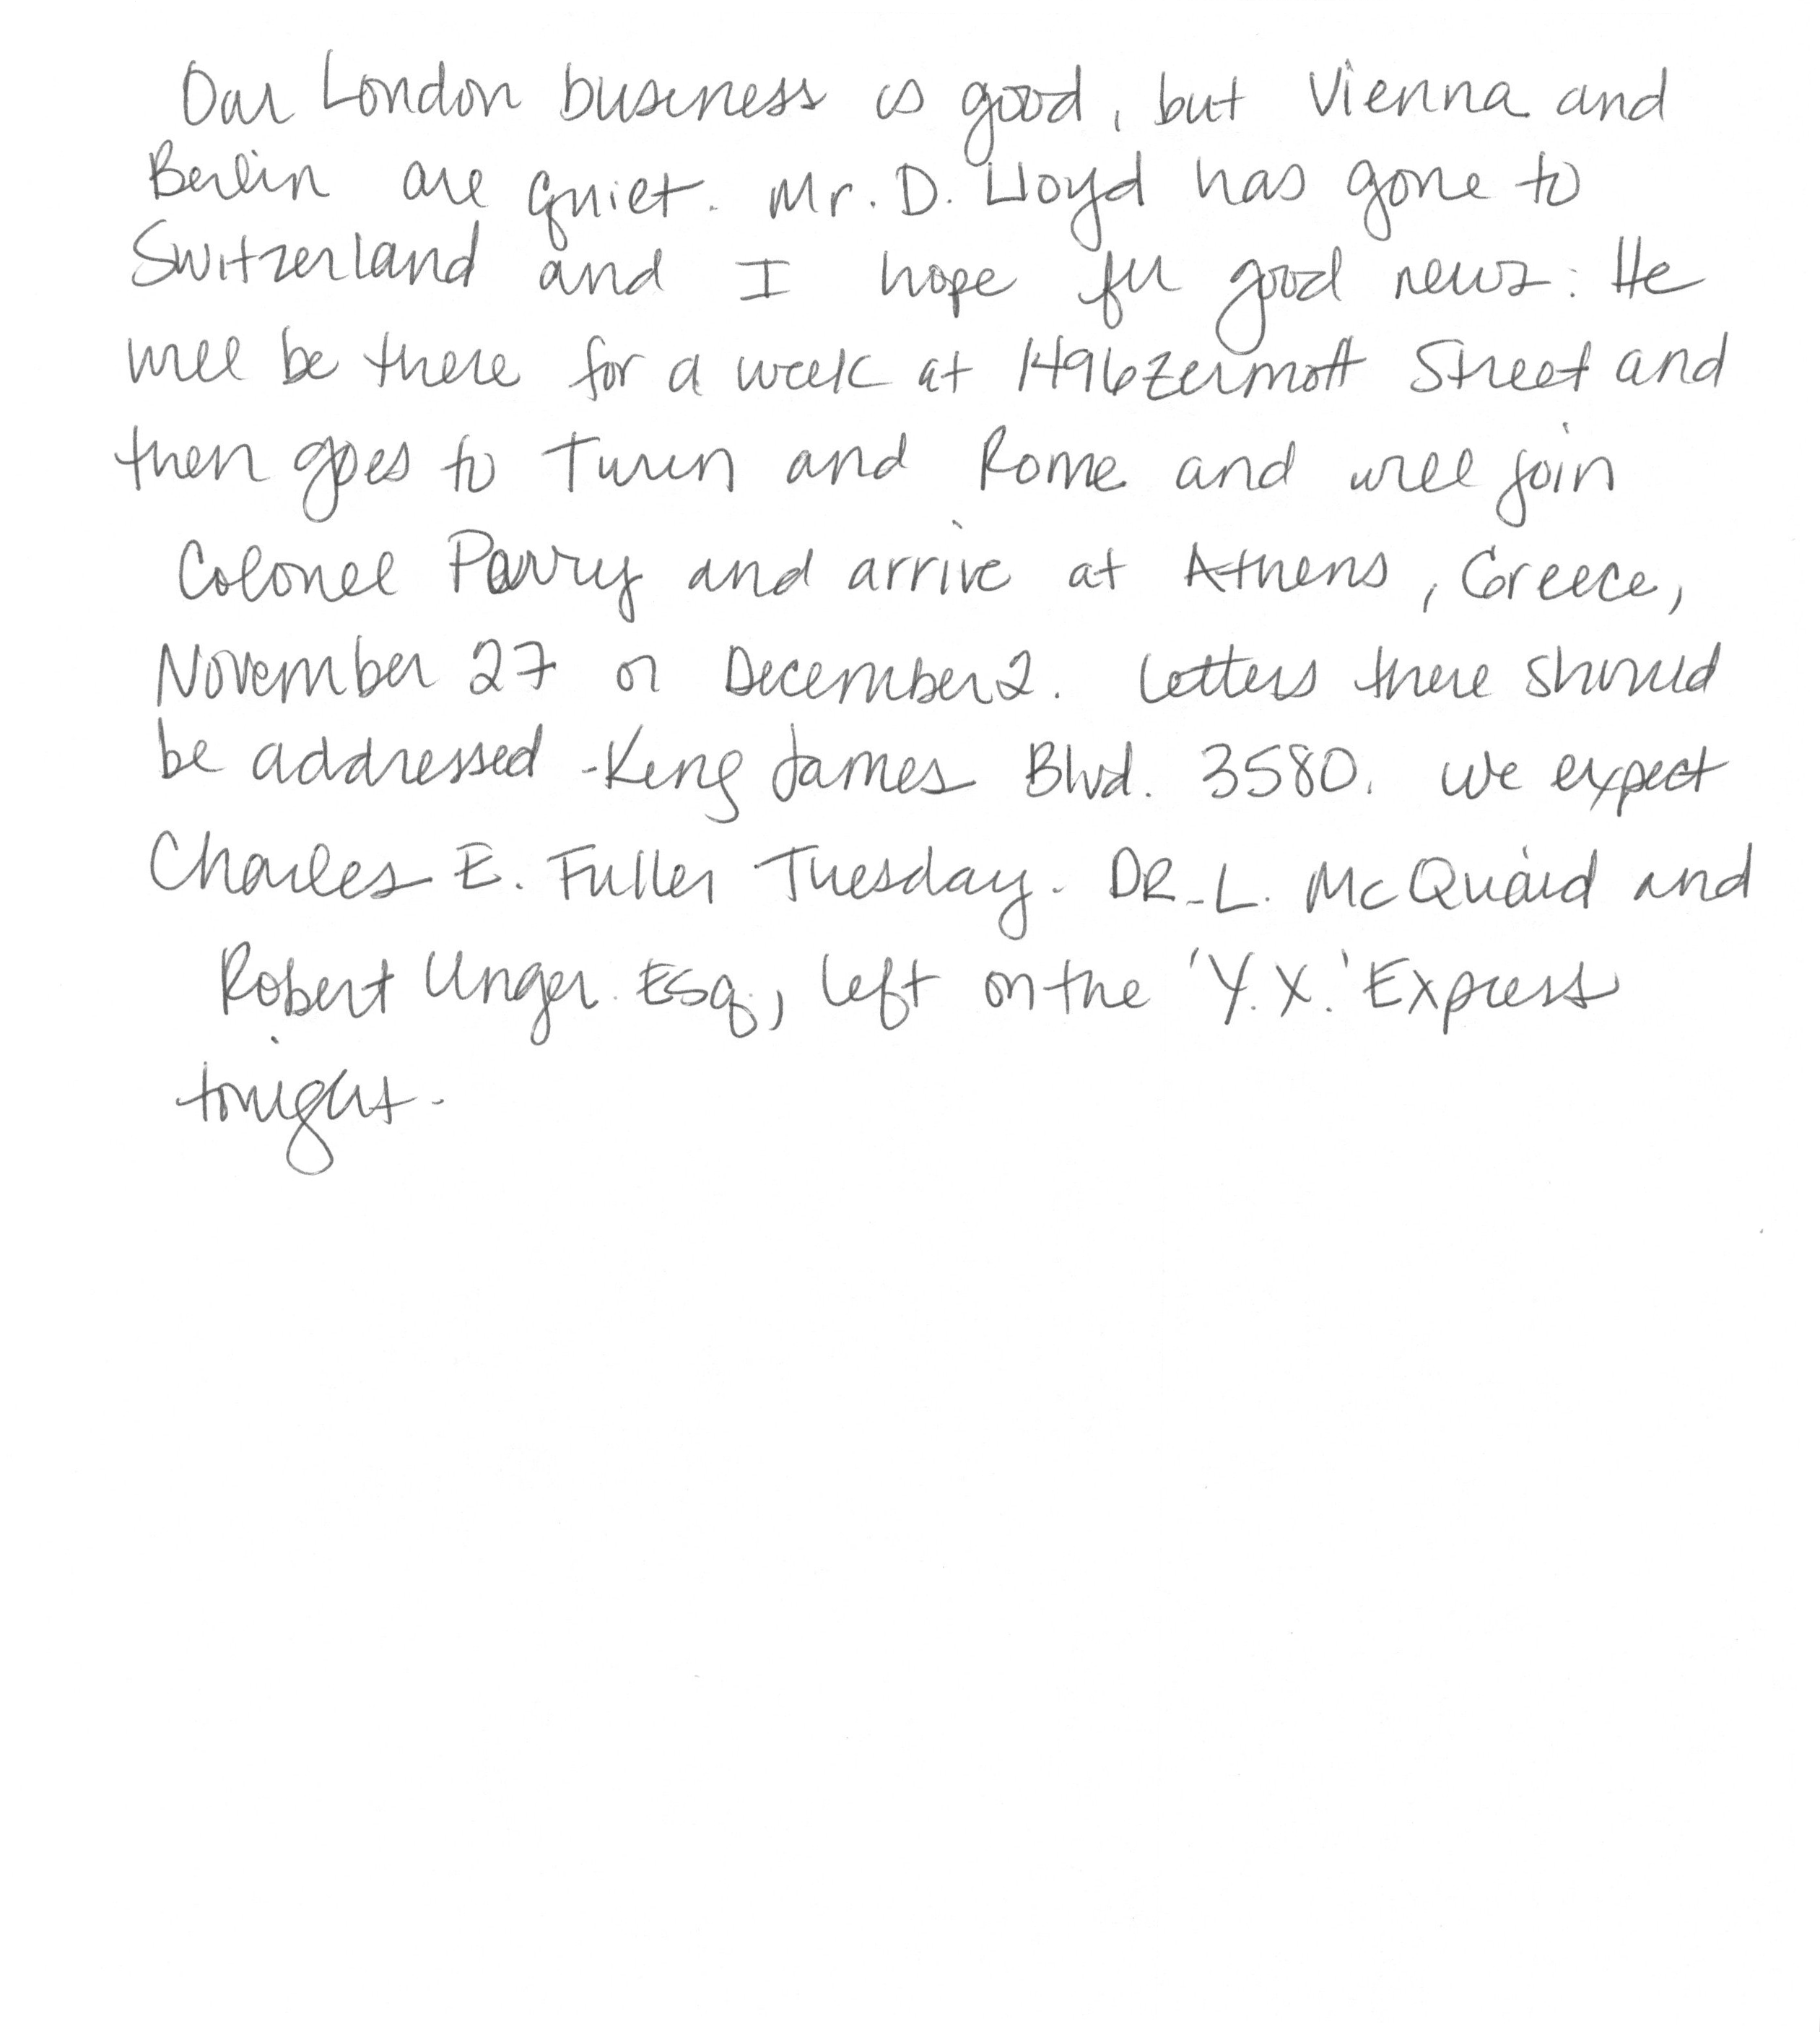 Our London business is good, but Vienna and
Berlin are quiet. Mr. D. Lloyd has gone to
Switzerland and I hope for good news. He
will be there for a week at 1496 Zermott Street and
then goes to Turin and Rome and will join
Colonel Parry and arrive at Athens, Greece,
November 27 or December 2. Letters there should
be addressed - King James Blvd. 3580. We expect
Charles E. Fuller Tuesday. DR. L. McQuaid and
Robert Unger. Esq., left on the 'Y.X.' Express
tonight.